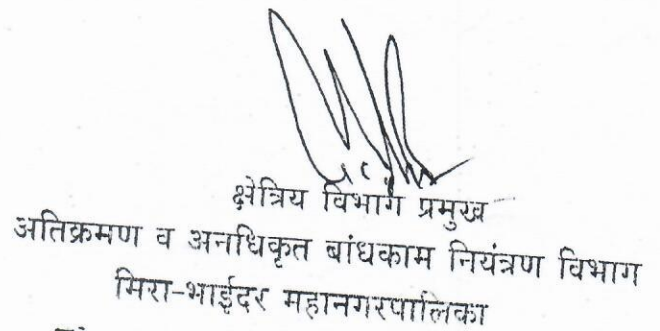 क्षेत्रिय विभाग प्रमुख
अतिक्रमण व अनधिकृत बांधकाम नियंत्रण विभाग
मिरा-भाईंदर महानगरपालिका